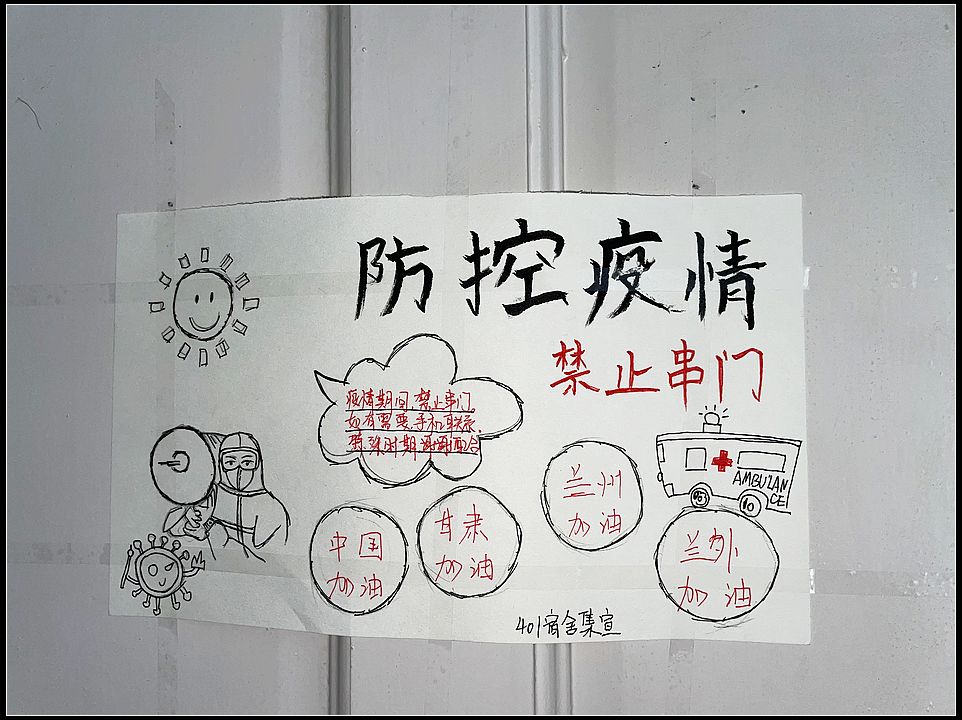 防控疫情
禁止串门
疫情期间,禁止串门,
如有需要,手机联系,
特殊时期谢谢配合
兰州
加油
AMBULAN
CE
中国
加油
甘肃
加油
兰外
加油
401宿舍集宣